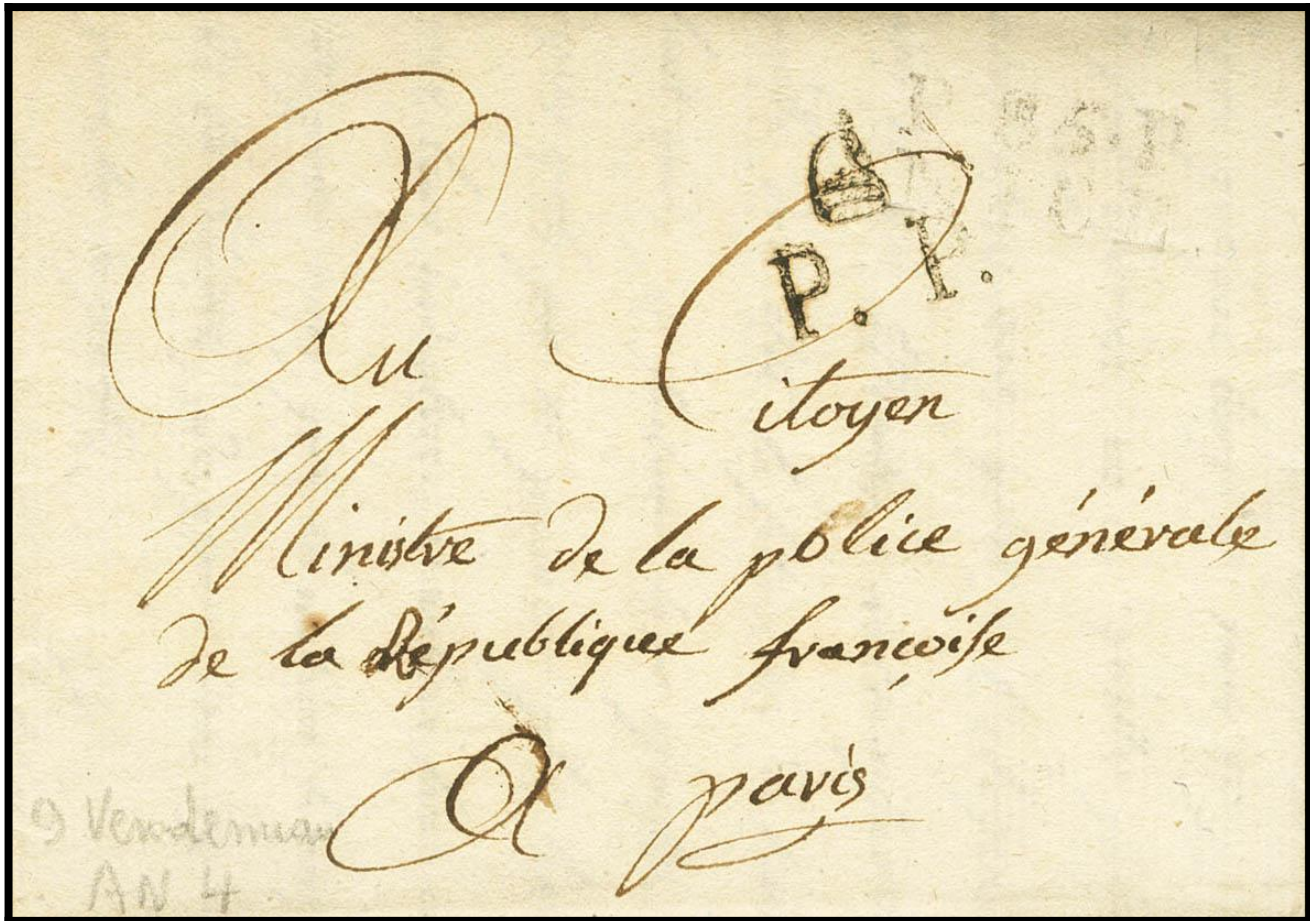 P. P.
Au Citoyen
Ministre de la police générale
de la République françoise
A paris
9 Vendemiaire
AN 4